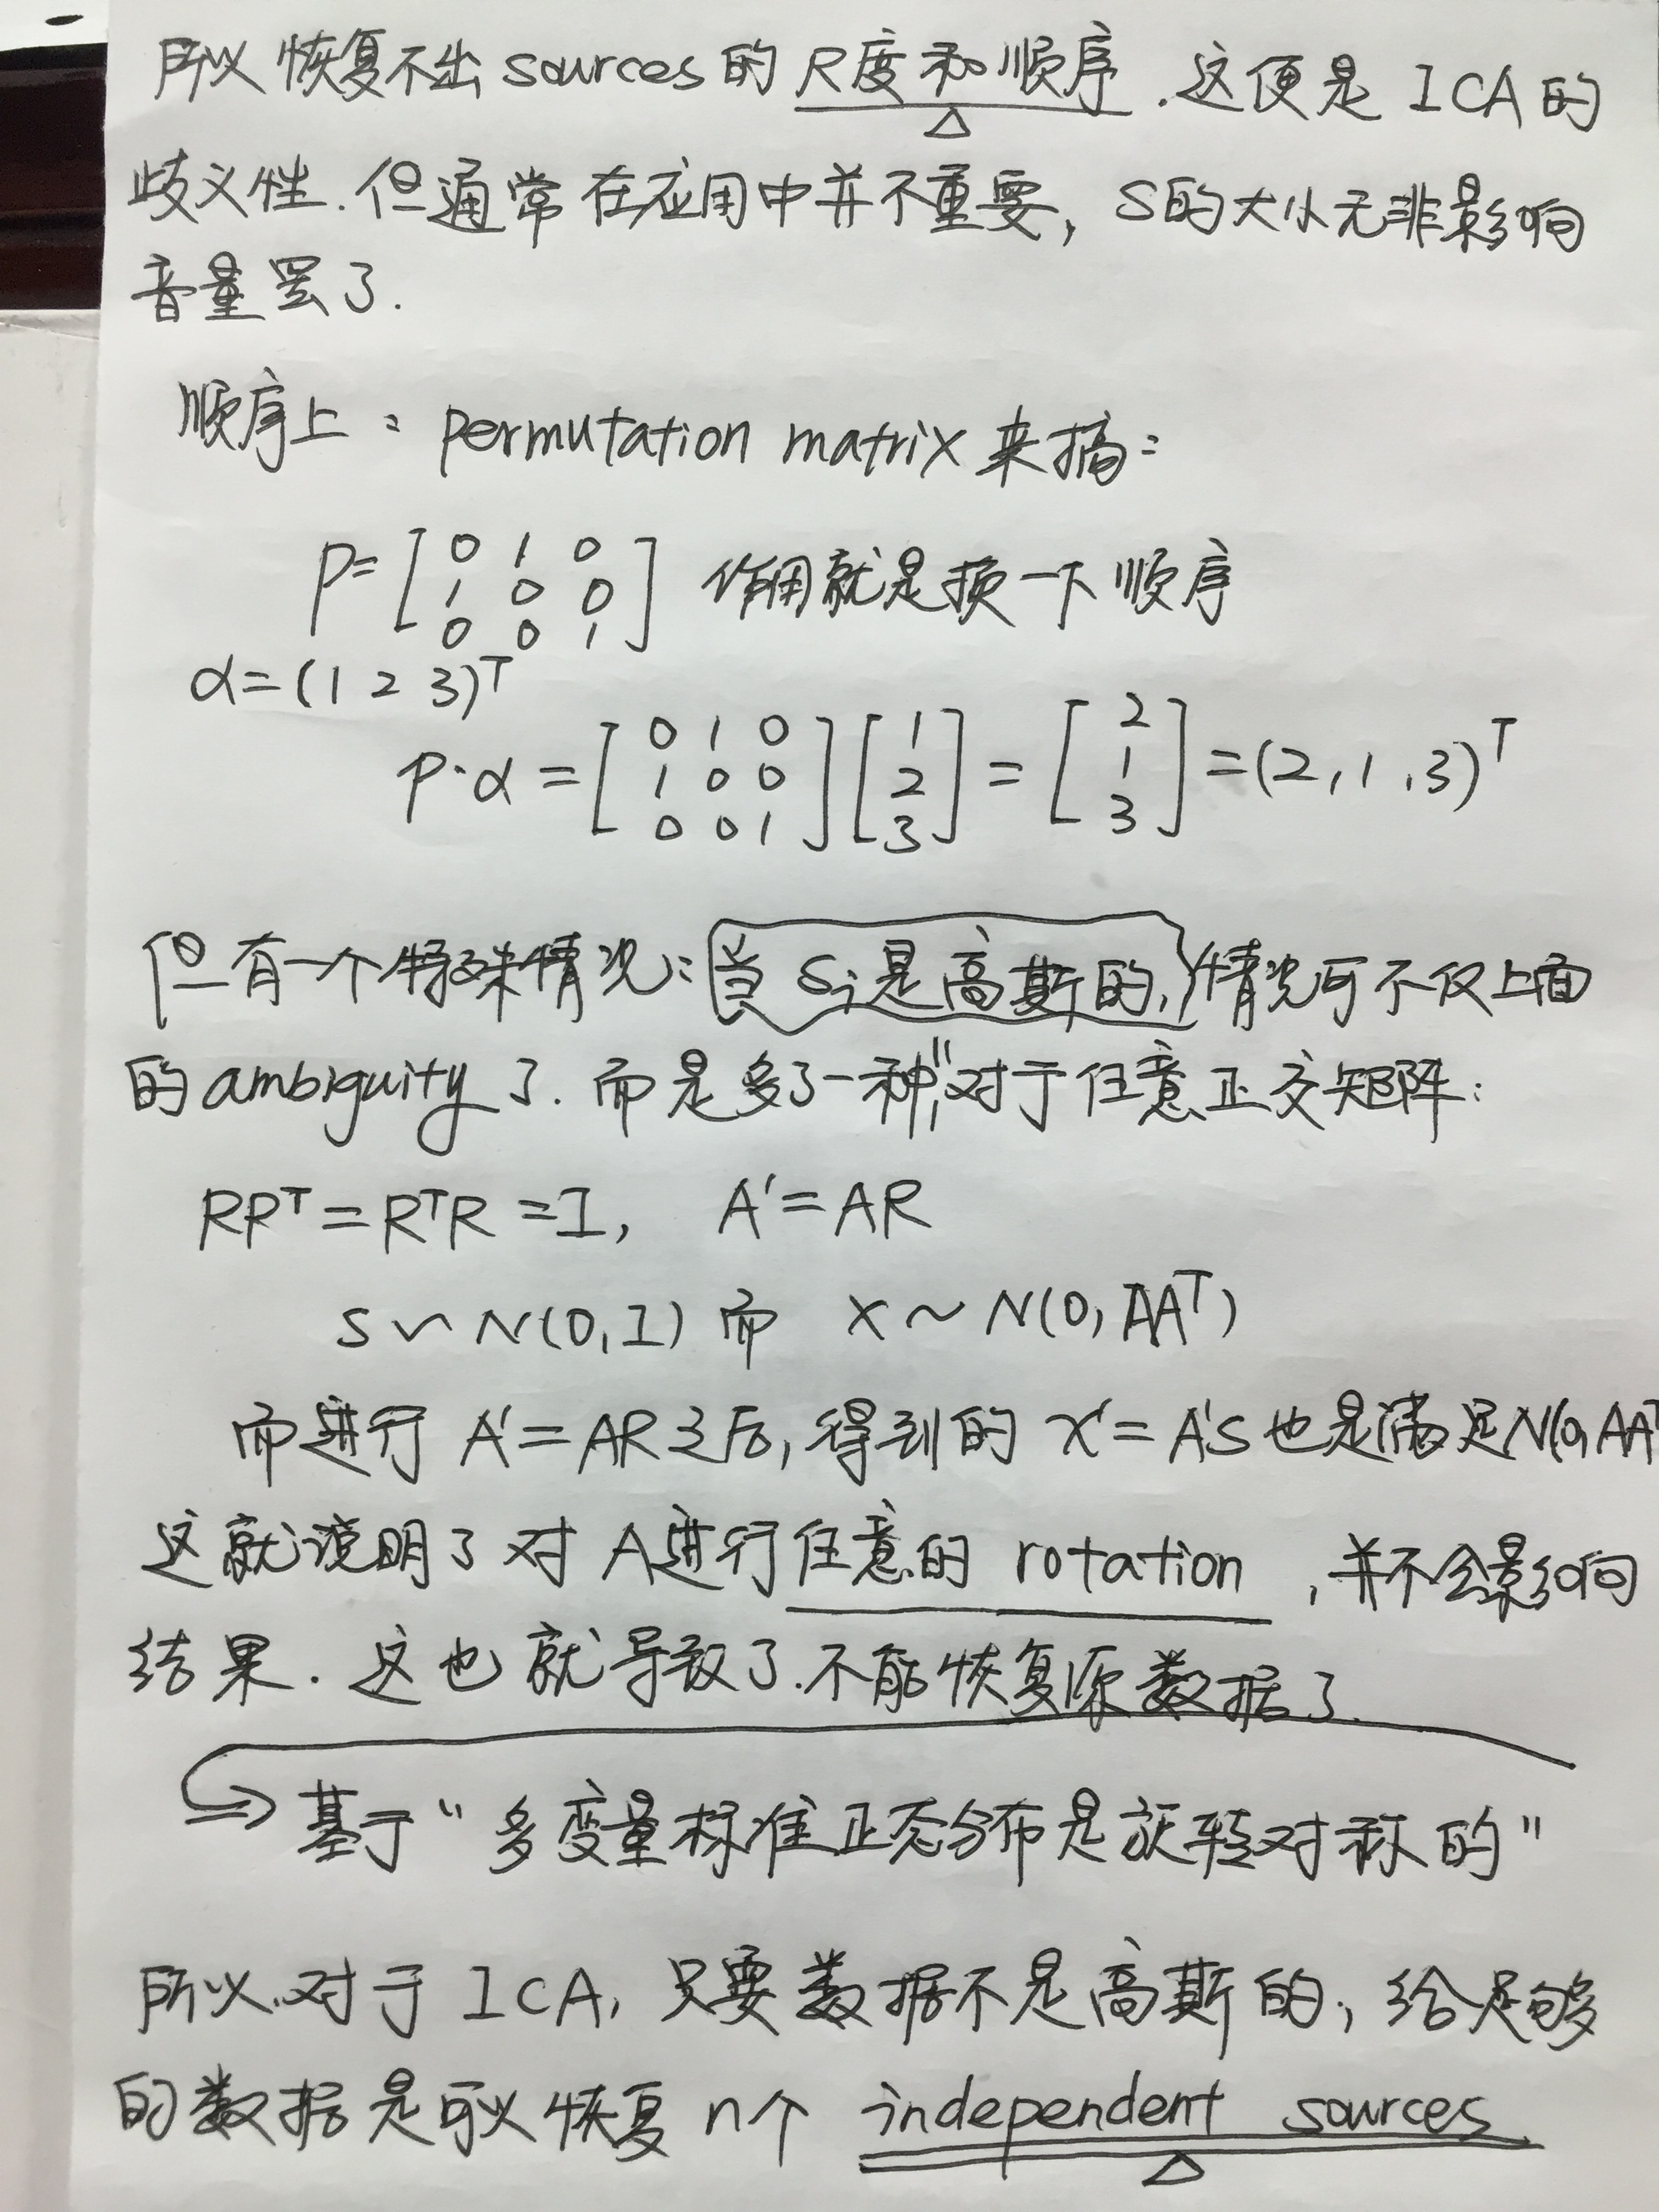 所以恢复不出sources的尺度和顺序.这便是ICA的
歧义性.但通常在应用中并不重要,S的大小无非影响
音量罢了.
顺序上:permutation matrix来搞:
P=[0 1 0
1 0 0
0 0 1] 作用就是换一下顺序
α=(1 2 3)ᵀ
P·α=[0 1 0
1 0 0
0 0 1][1
2
3]=[2
1
3]=(2,1,3)ᵀ
但有一个特殊情况:当Si是高斯的,情况可不仅上面
的ambiguity了.而是多了一种"对于任意正交矩阵:
RRᵀ=RᵀR=I, A'=AR
S~N(0,I)而 x~N(0,AAᵀ)
而进行A'=AR之后,得到的x'=A'S也是满足N(0,AAᵀ
这就说明了对A进行任意的rotation,并不会影响
结果.这也就导致了.不能恢复原数据了.
基于"多变量标准正态分布是旋转对称的"
所以.对于ICA,只要数据不是高斯的,给足够
的数据是可以恢复n个independent sources.